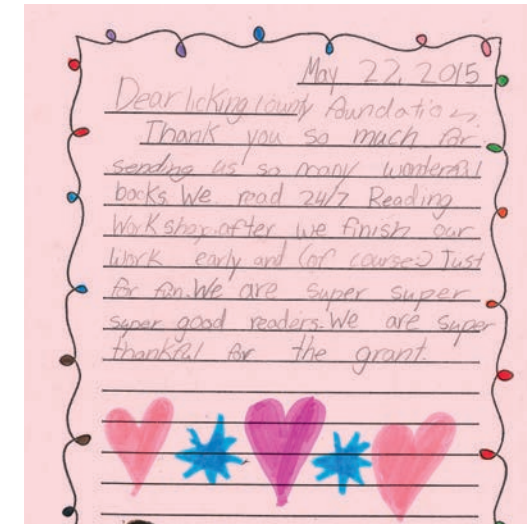 May 22, 2015
Dear licking county foundation,
Thank you so much for
sending us so many wonderful
books. We read 24/7 Reading
Workshop, after we finish our
work early and (of course:) Just
for fun. We are super super
super good readers. We are super
thankful for the grant.